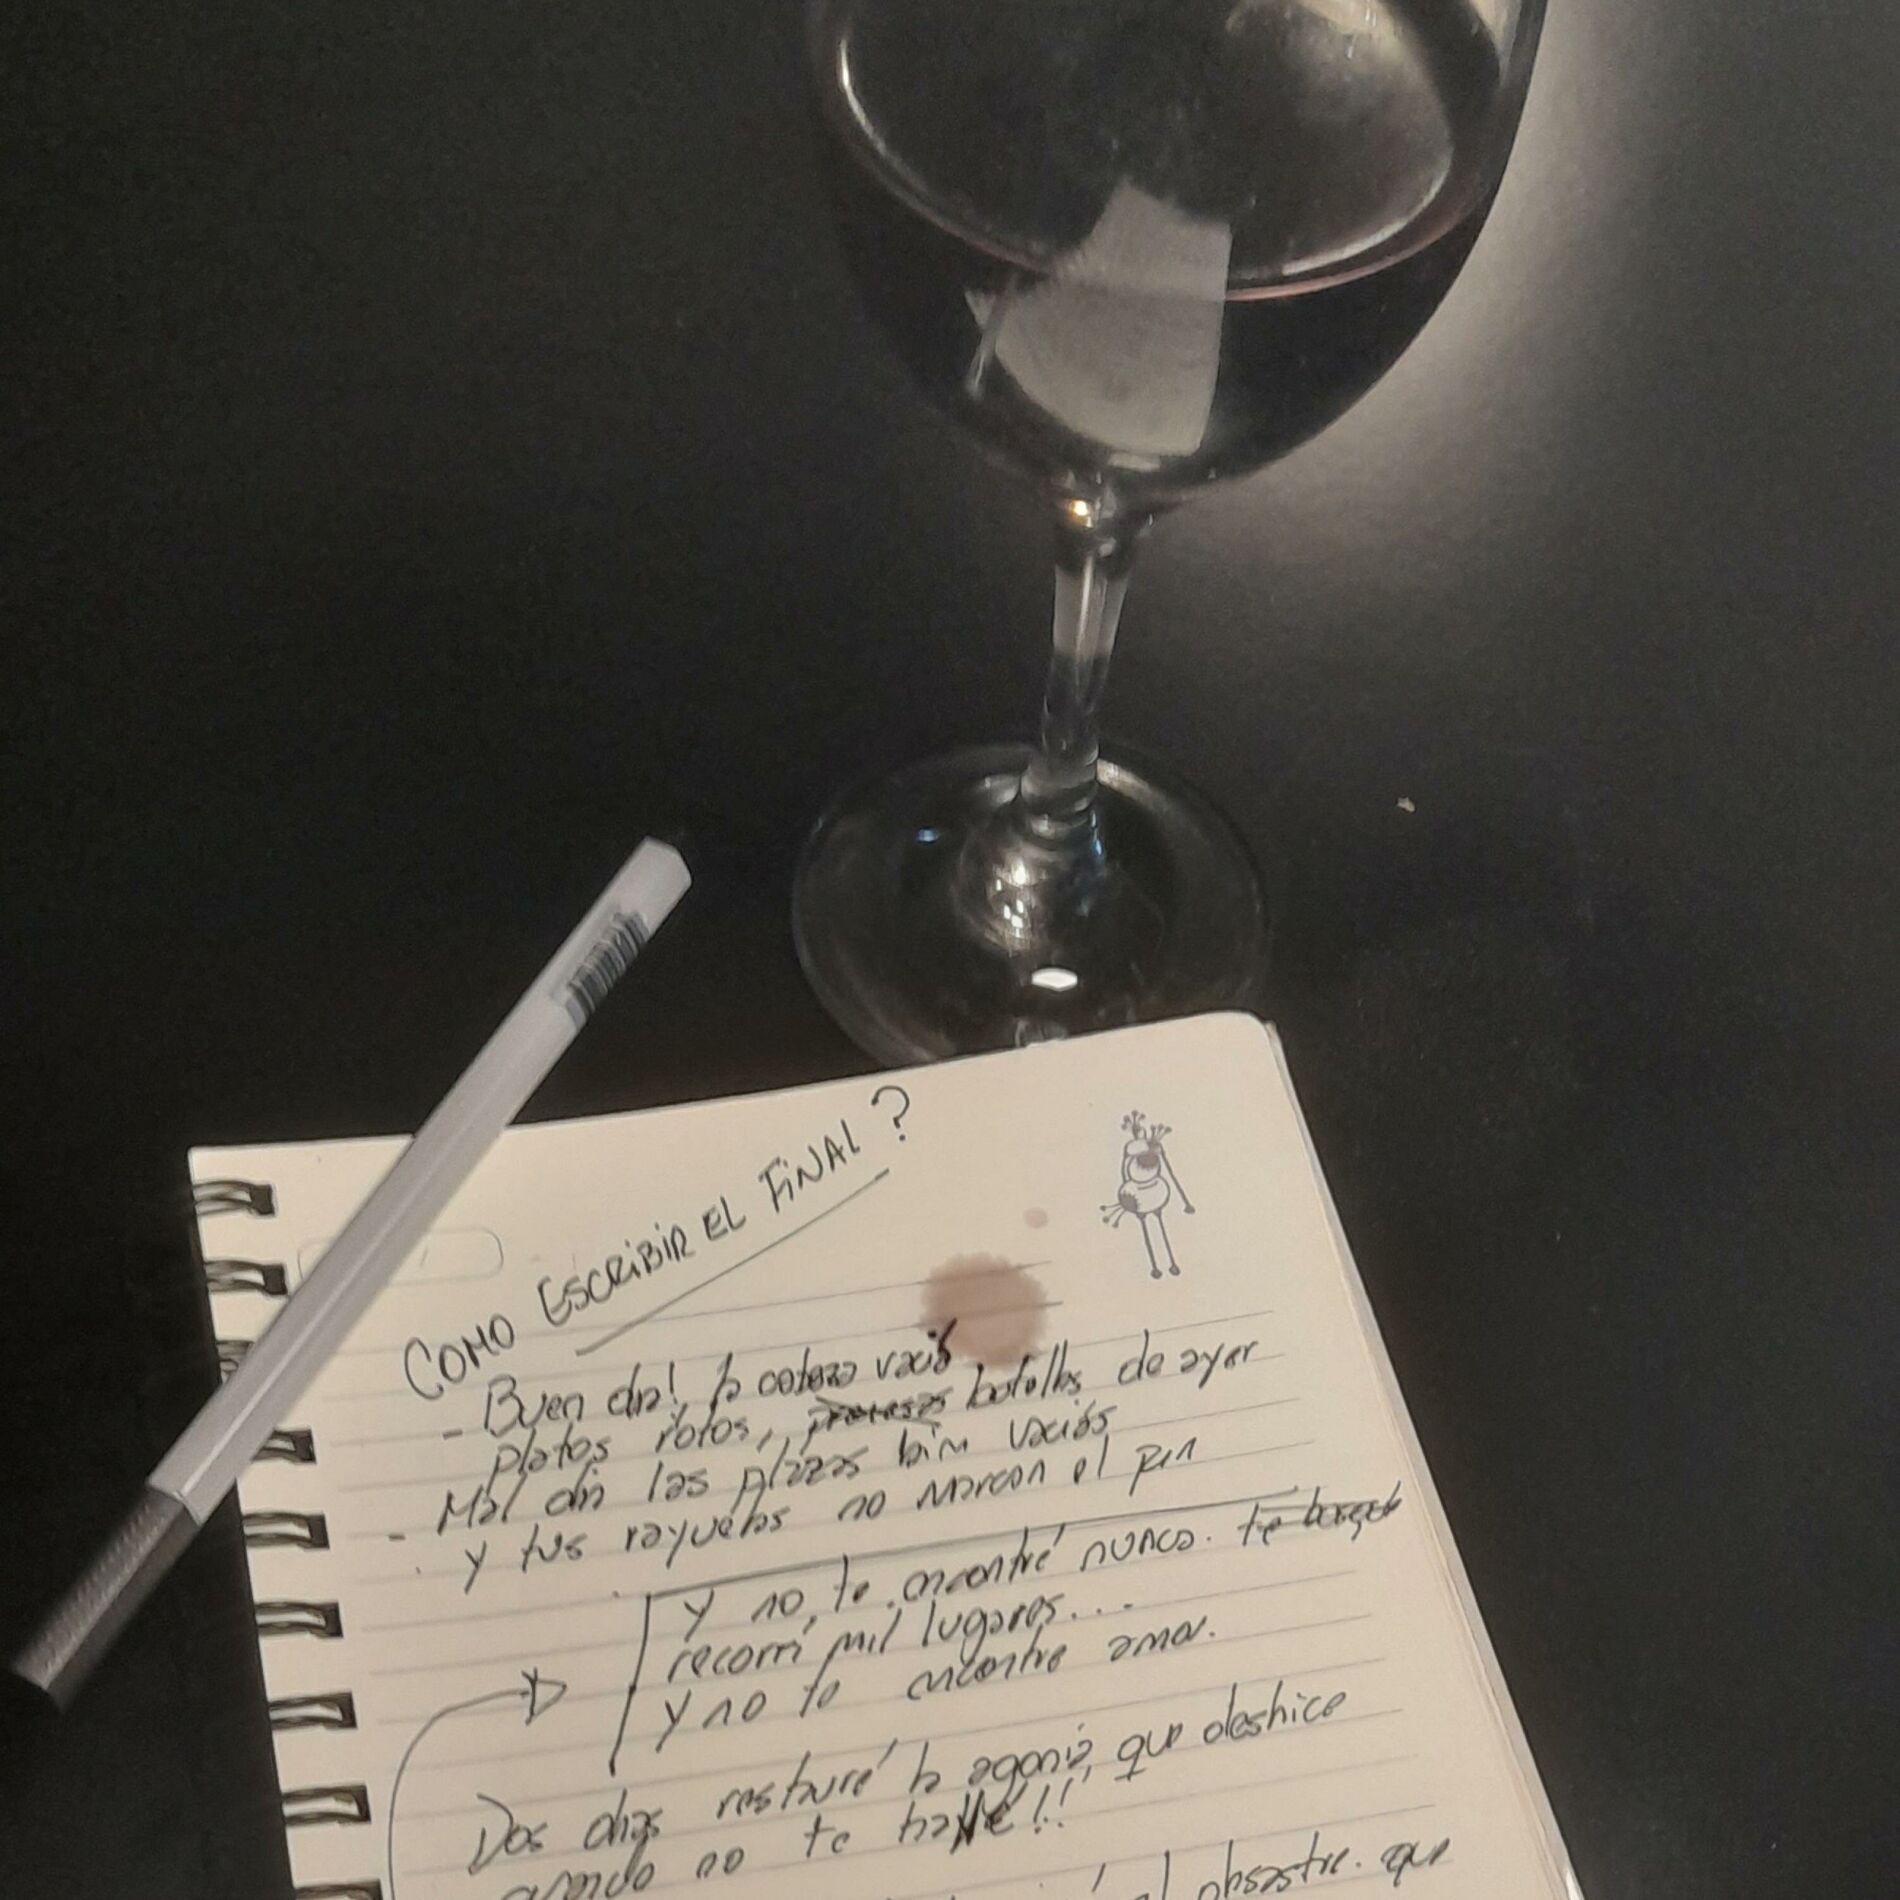 COMO ESCRIBIR EL FINAL?
- Buen día! la cabeza vacía
platos rotos, botellas de ayer
- Mal día las plazas bien vacías
y tus rayuelas no marcan el fin
Y no te encontré nunca. te busqué
recorrí mil lugares...
Y no te encontré amor.
Dos días restauré la agonía que deshice
cuando no te hallé!!!
el desastre que